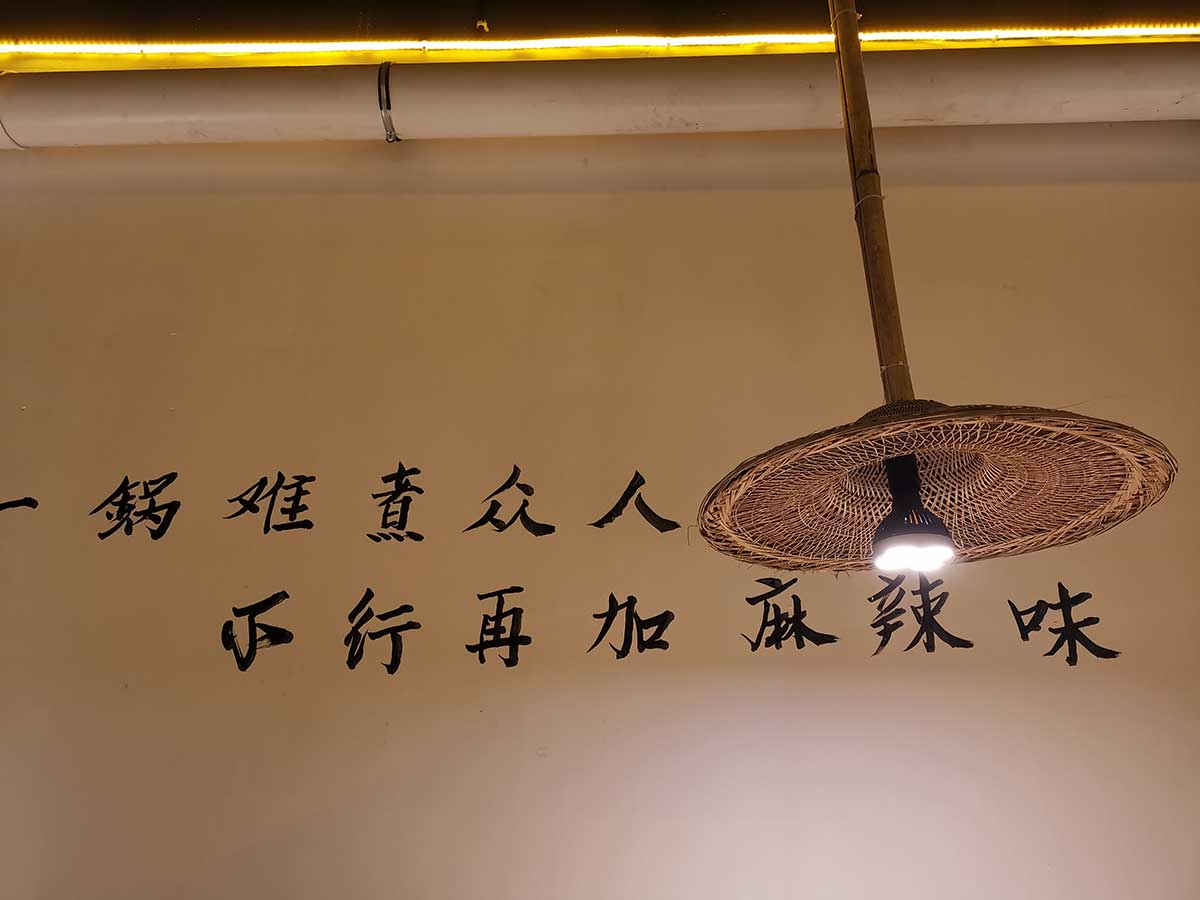 一鍋难煮众人
不行再加麻辣味